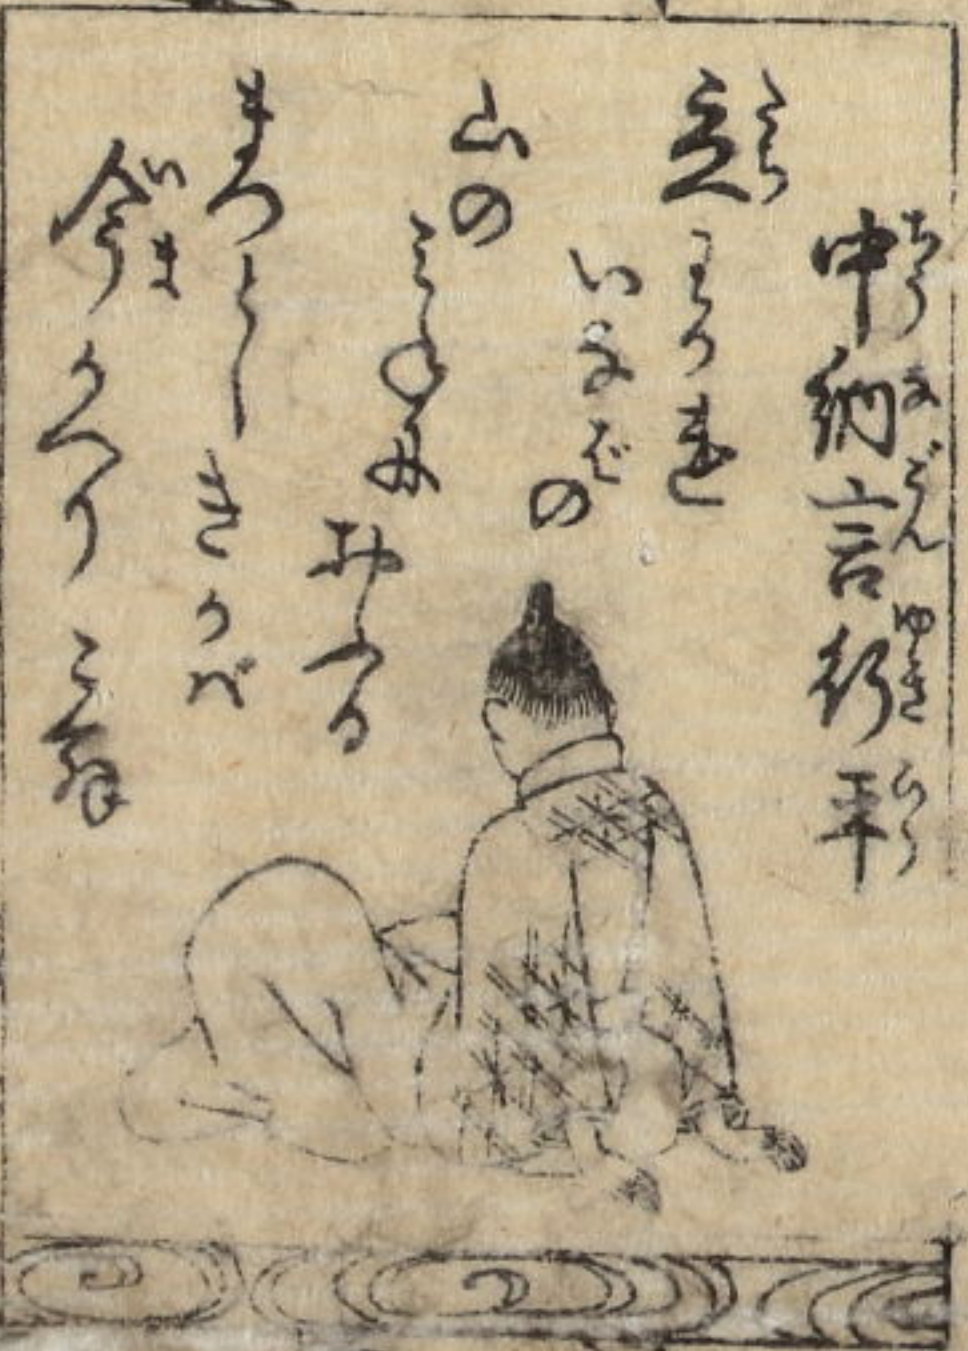 中納言行平
ちうなごんゆきひら
立わかれ
たち
いなばの
山の
みねに
おふる
まつとし
きかば
今かへりこむ
いま